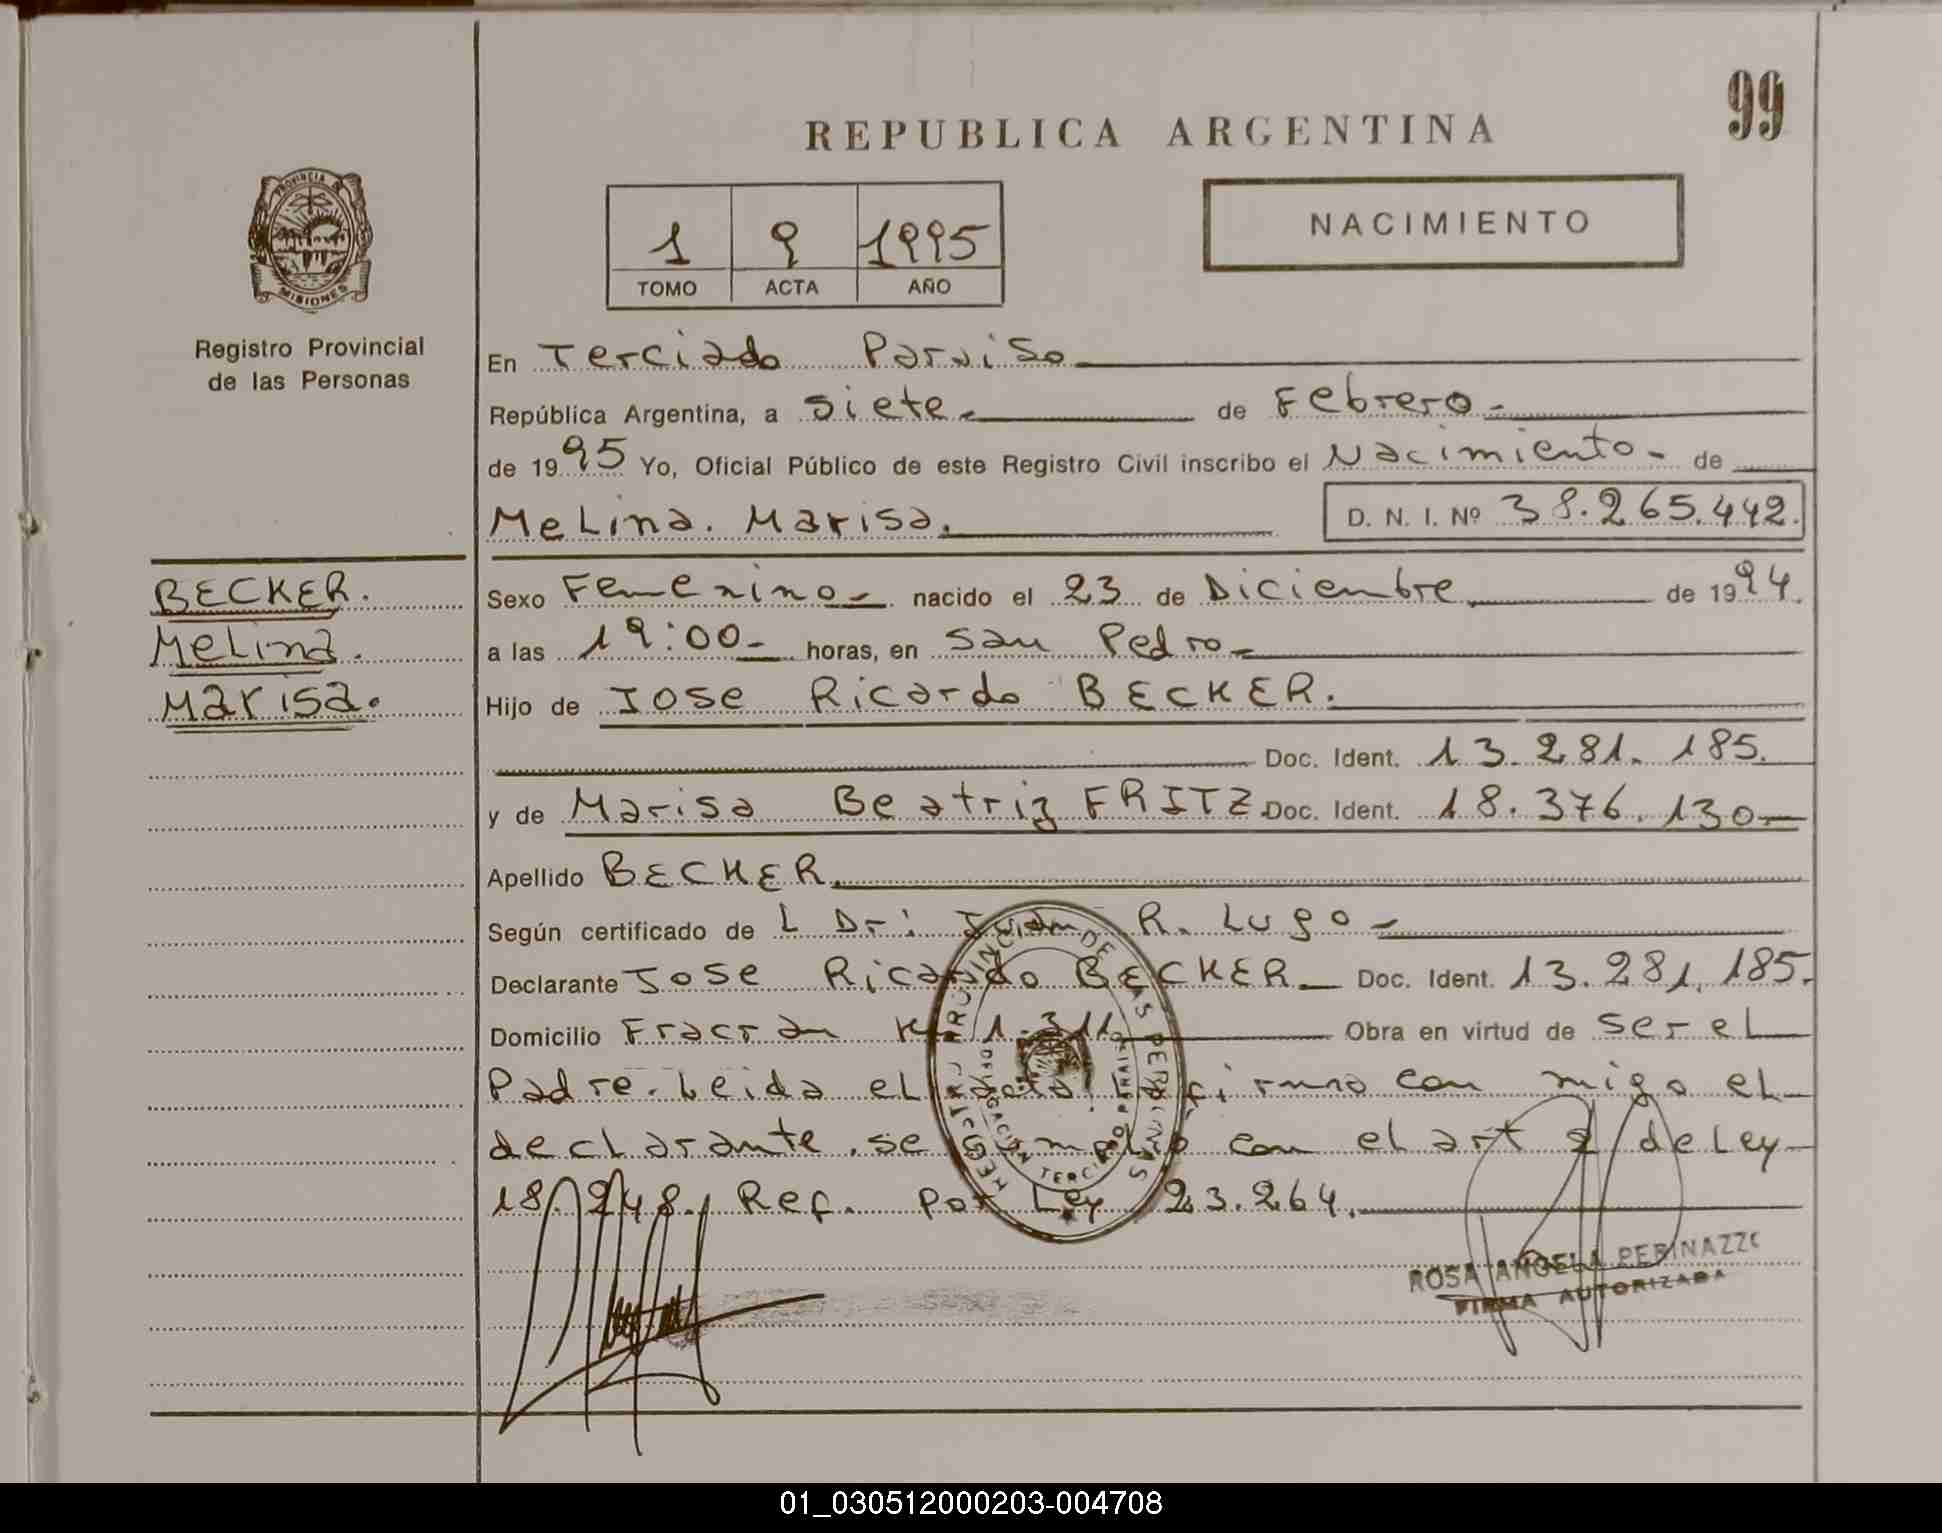 99
REPUBLICA ARGENTINA
NACIMIENTO
1 9 1995
TOMO ACTA AÑO
PROVINCIA DE
MISIONES
Registro Provincial
de las Personas
BECKER.
Melina.
Marisa.
En Terciado Paraiso
República Argentina, a siete.- de Febrero-
de 1995 Yo, Oficial Público de este Registro Civil inscribo el Nacimiento- de
Melina. Marisa.
D. N. I. Nº 38.265.442.
Sexo Femenino- nacido el 23 de Diciembre de 1994.
a las 19:00- horas, en San Pedro-
Hijo de Jose Ricardo BECKER.
Doc. Ident. 13.281.185.
y de Marisa Beatriz FRITZ Doc. Ident. 18.376.130-
Apellido BECKER.
Según certificado de L Dr: Juan R. Lugo-
Declarante Jose Ricardo BECKER- Doc. Ident. 13.281.185.
Domicilio Fracran Km 1.311 Obra en virtud de ser el
Padre. Leida el acta la firmo con migo el
declarante. se cumplió con el art 2 de Ley
18.248. Ref. por Ley 23.264.
REGISTRO PROVINCIAL DE LAS PERSONAS
DELEGACIÓN TERCIADO PARAISO
ROSA ANGELA PERINAZZO
FIRMA AUTORIZADA
01_030512000203-004708